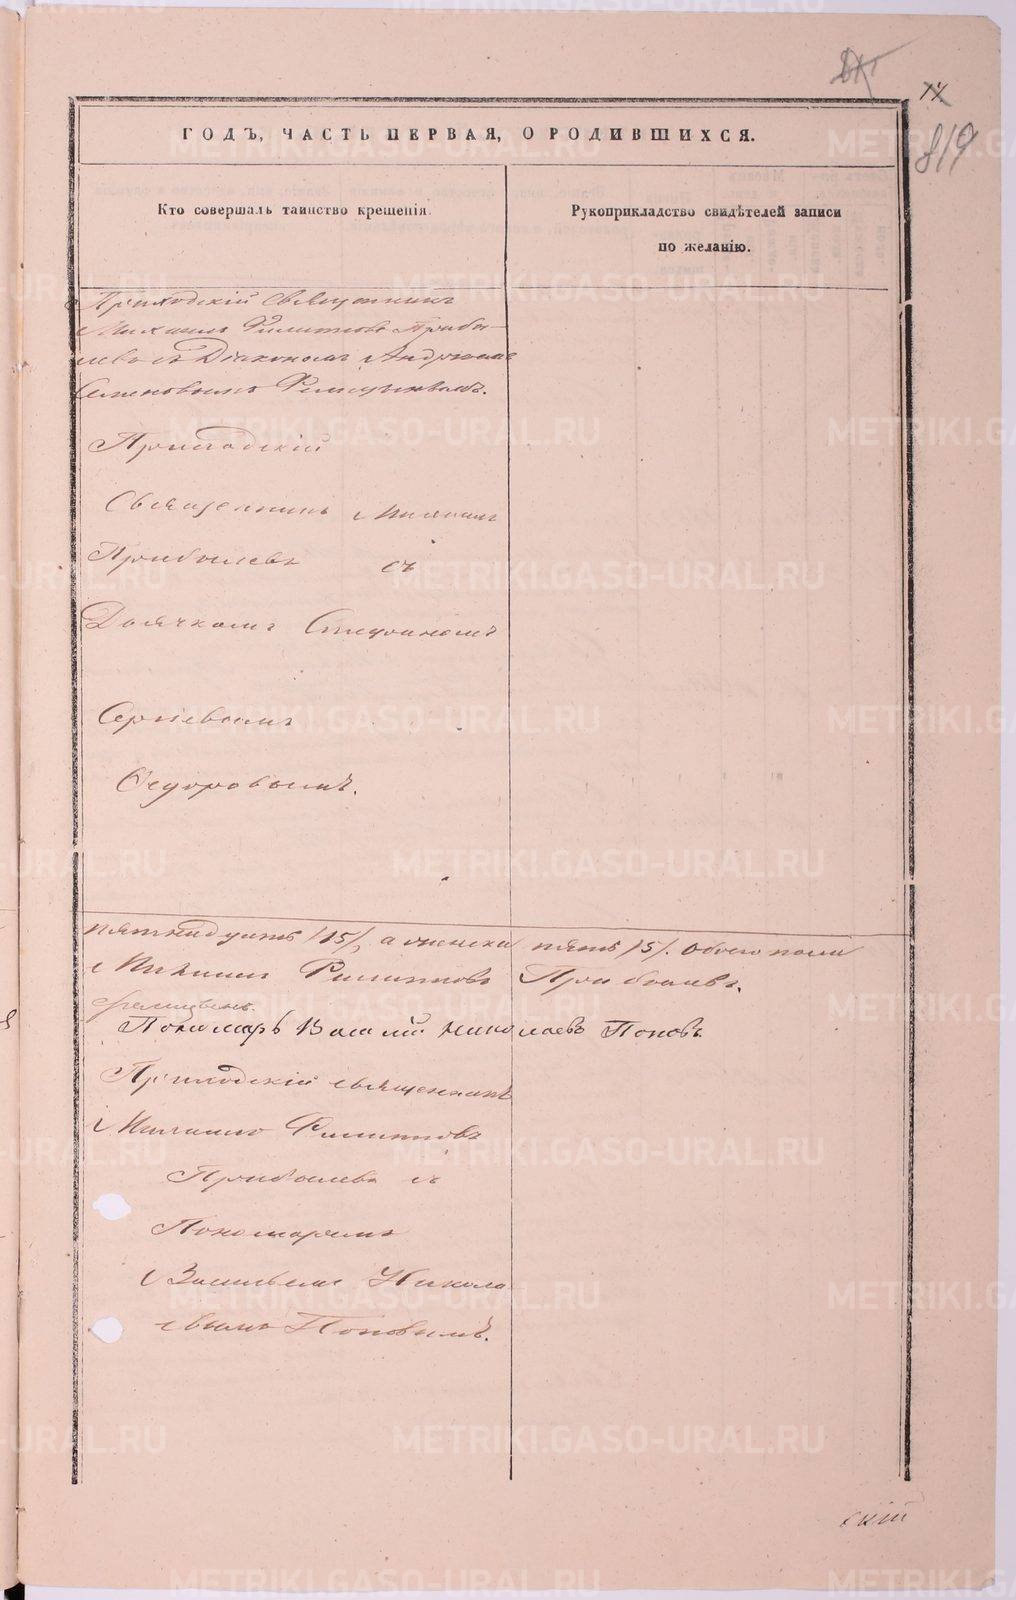 819
ГОДЪ, ЧАСТЬ ПЕРВАЯ, О РОДИВШИХСЯ.
Кто совершалъ таинство крещенія.
Рукоприкладство свидѣтелей записи
по желанію.
Приходскій Священникъ
Михаилъ Филиповъ Прибы-
левъ съ Діакономъ
Семеновымъ
Приходскій
Священникъ Михаилъ
Прибылевъ съ
Дьячкомъ Стефаномъ
Сергіевымъ
Ѳедоровымъ.
пятнадцать /15/, а женска пять /5/. Обоего пола
Михаилъ Филиповъ Прибылевъ.
Пономарь Василій Николаевъ Поповъ.
Приходскій священникъ
Михаилъ Филиповъ
Прибылевъ съ
Пономаремъ
Васильемъ Никола
евымъ Поповымъ.
скій
METRIKI.GASO-URAL.RU